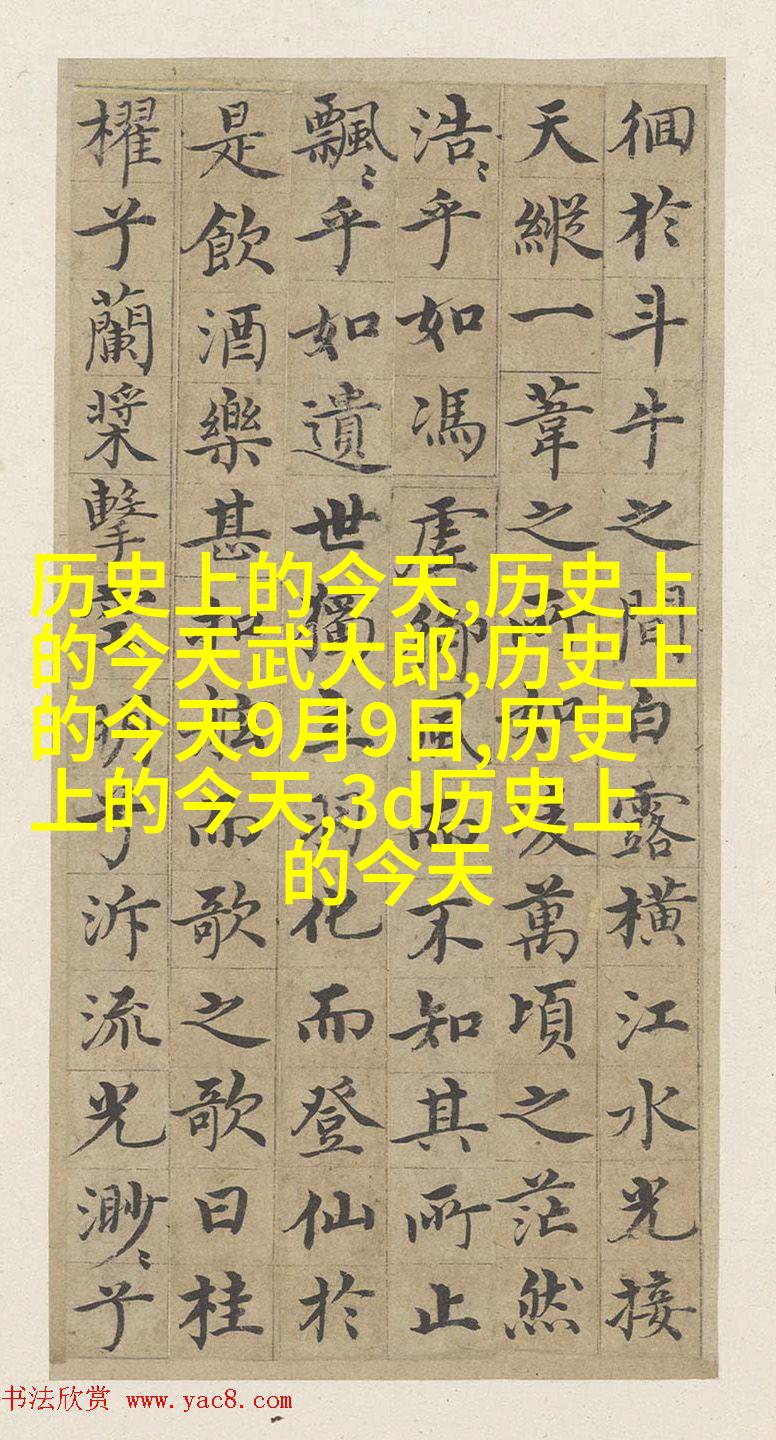 徊於斗牛之間白露橫江水光接
天縱一葦之所如萬頃之茫然
浩〻乎如馮虛御風而不知其所止
飄〻乎如遺世獨立羽化而登仙於
是飲酒樂甚扣舷而歌之歌曰桂
櫂兮蘭槳擊空明兮泝流光渺〻兮
历史上的今天,历史上
的今天武大郎,历史上
的今天9月9日,历史
上的今天,3d历史上
的今天
书法欣赏 www.yac8.com